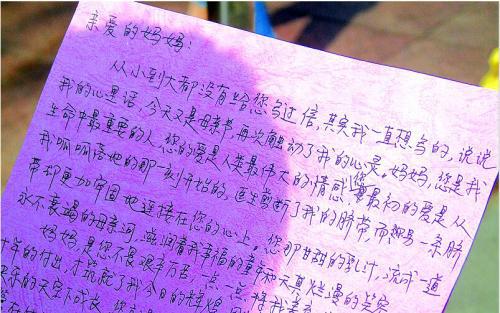 亲爱的妈妈:
从小到大都没有给您写过信,其实我一直想写的,说说
我的心里话,今天又是母亲节,再次触动了我的心灵。妈妈,您是我
生命中最重要的人,您的爱是人类最伟大的情感,您最初的爱是从
我呱呱落地的那一刻开始的,医生剪断了我的脐带,而想另一条脐
带却更加牢固地连接在您的心上。您那甘甜的乳汁,流成一道
永不衰竭的母亲河,滋润着我幸福的童年和天真烂漫的笑容
妈妈,是您不畏艰辛万苦,一点一点将我养
的付出,才筑就了我今日的辉煌
乐的天空下成长